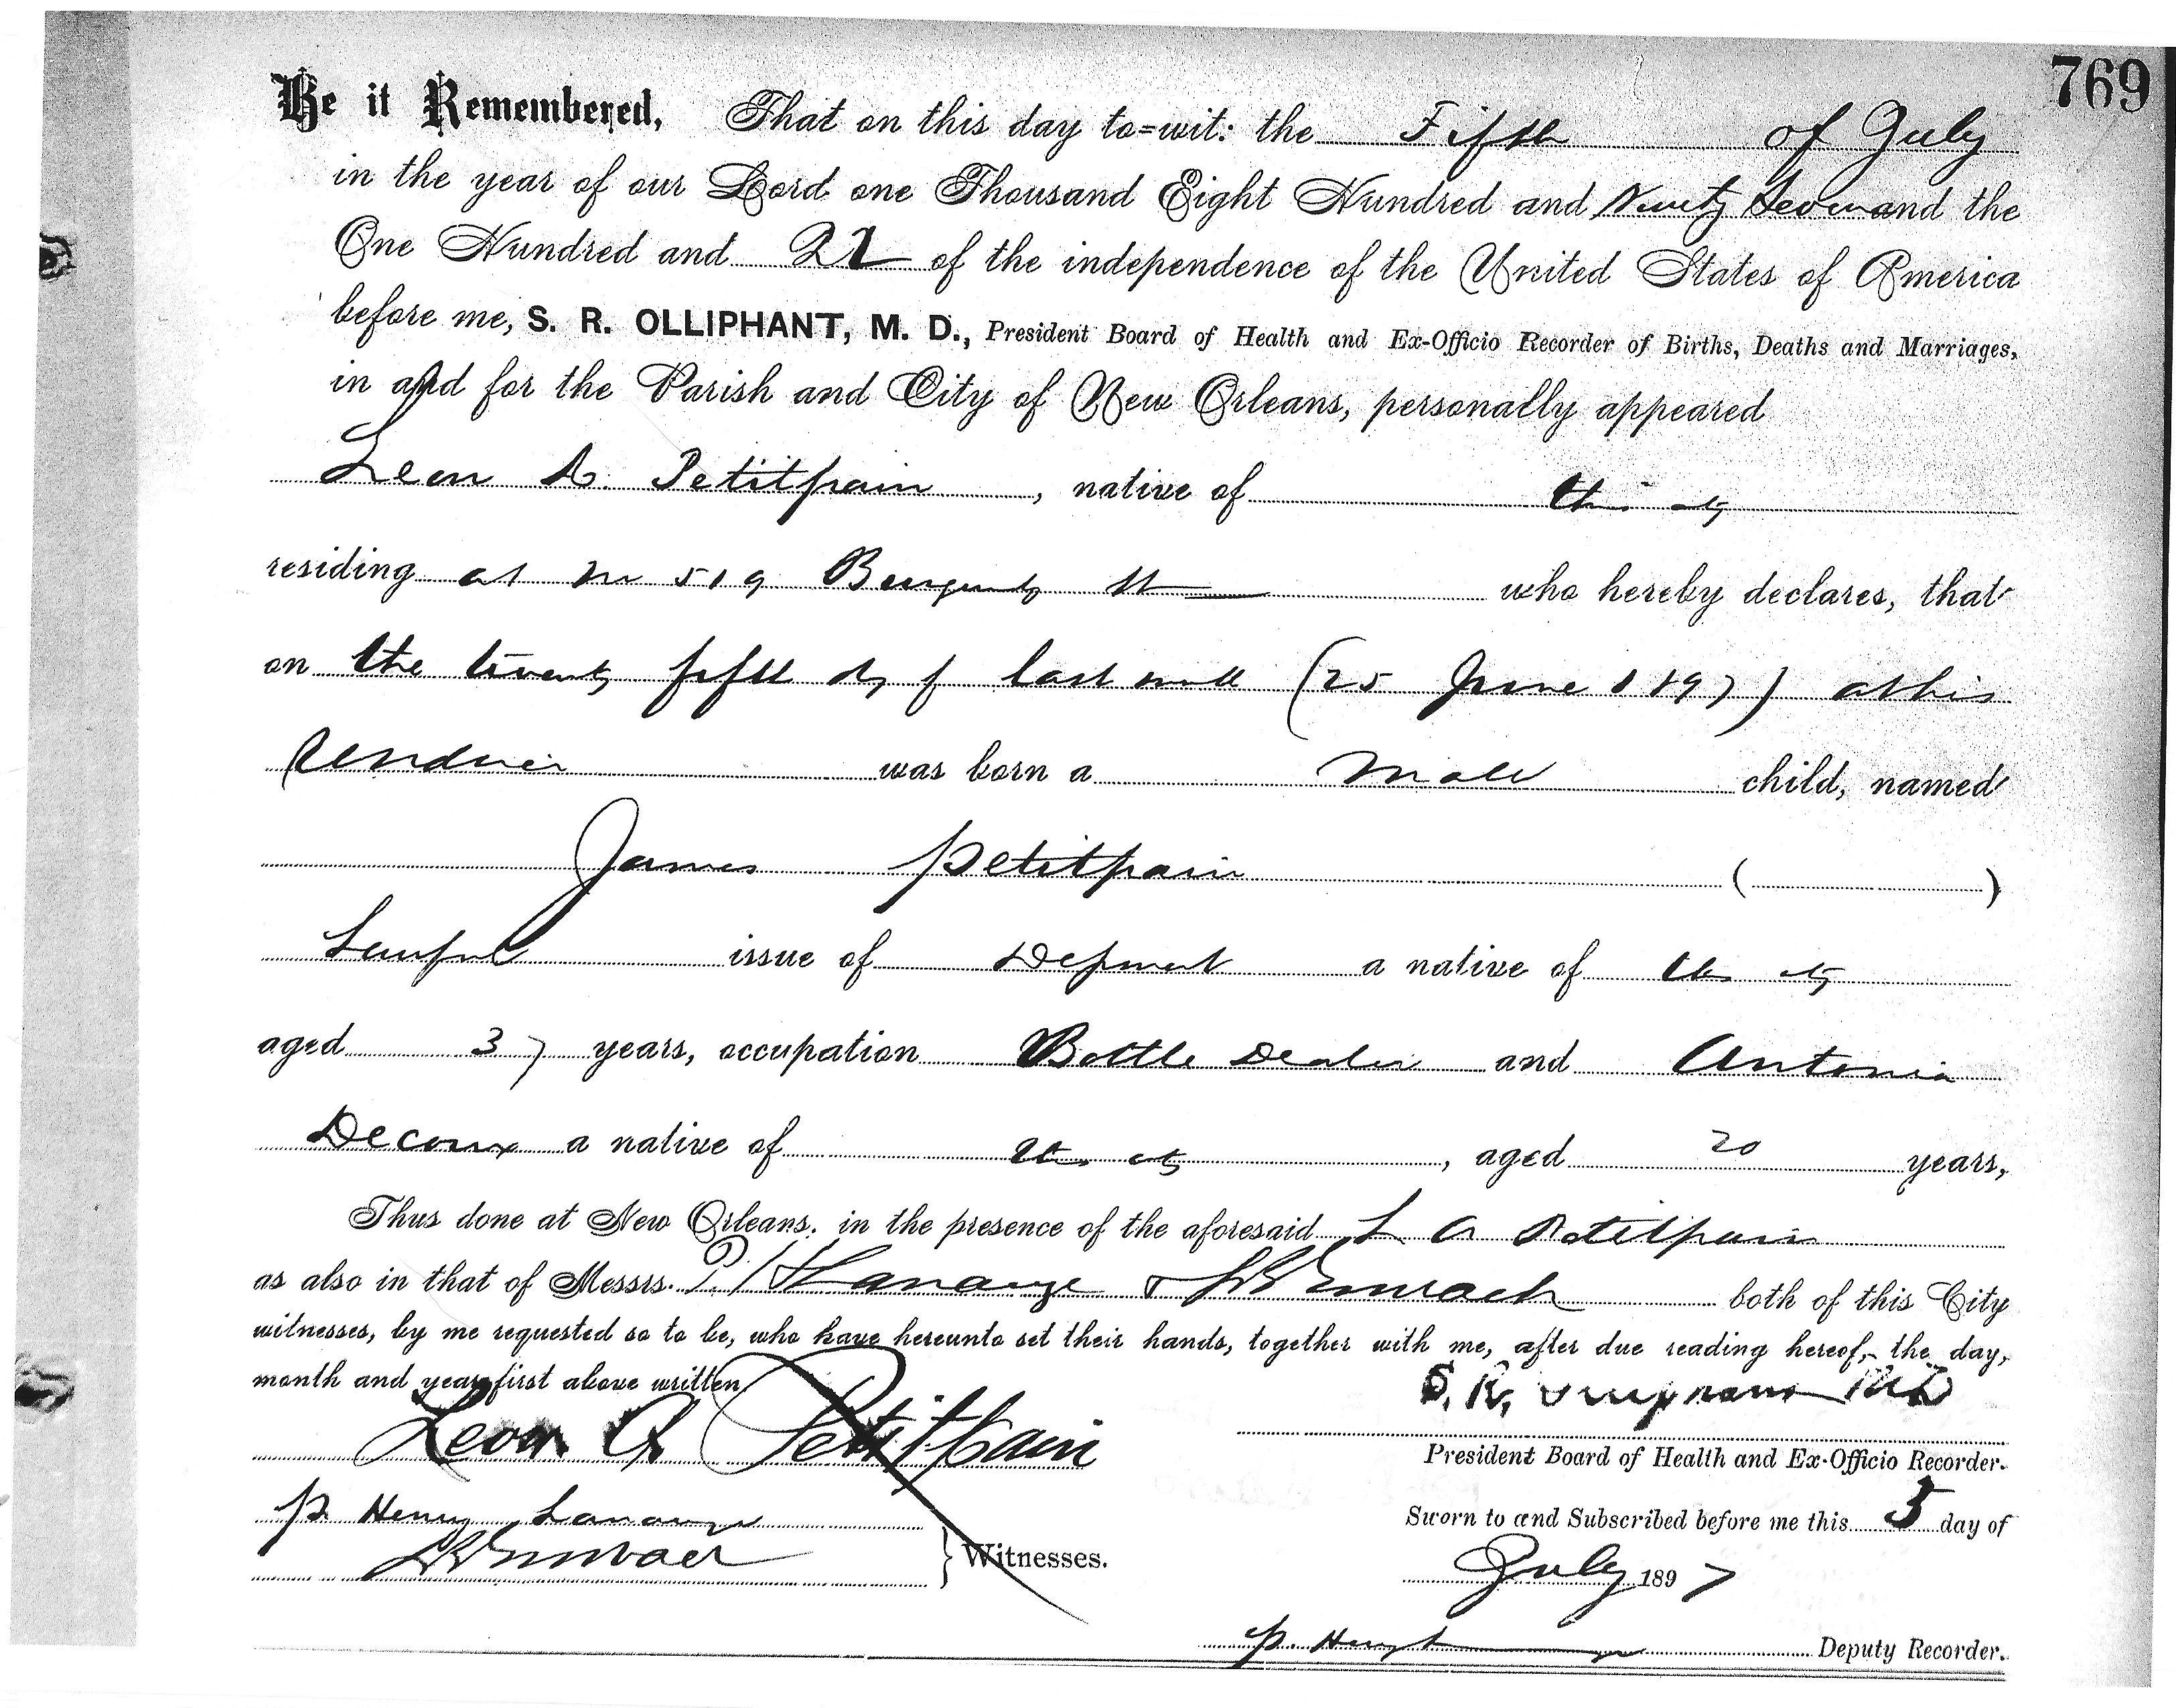 769
Be it Remembered, That on this day to=wit: the Fifth of July
in the year of our Lord one Thousand Eight Hundred and Ninety Seven and the
One Hundred and 21 of the independence of the United States of America
before me, S. R. OLLIPHANT, M. D., President Board of Health and Ex-Officio Recorder of Births, Deaths and Marriages,
in and for the Parish and City of New Orleans, personally appeared
Leon A. Petitpain, native of this city
residing at No 519 Burgundy St who hereby declares, that
on the twenty fifth day of last month (25 June 1897) at his
residence was born a male child, named
James Petitpain ( )
Lawful issue of Deponent a native of this city
aged 37 years, occupation Bottle Dealer and Antonia
Decoux a native of this city, aged 20 years,
Thus done at New Orleans, in the presence of the aforesaid L A Petitpain
as also in that of Messrs. P. H Lanauze & both of this City
witnesses, by me requested so to be, who have hereunto set their hands, together with me, after due reading hereof, the day,
month and year first above written
S. R. Olliphant MD
Leon A Petitpain
President Board of Health and Ex-Officio Recorder.
P. Henry Lanauze
Sworn to and Subscribed before me this 5 day of
Witnesses.
July 1897
P. Henry Deputy Recorder.